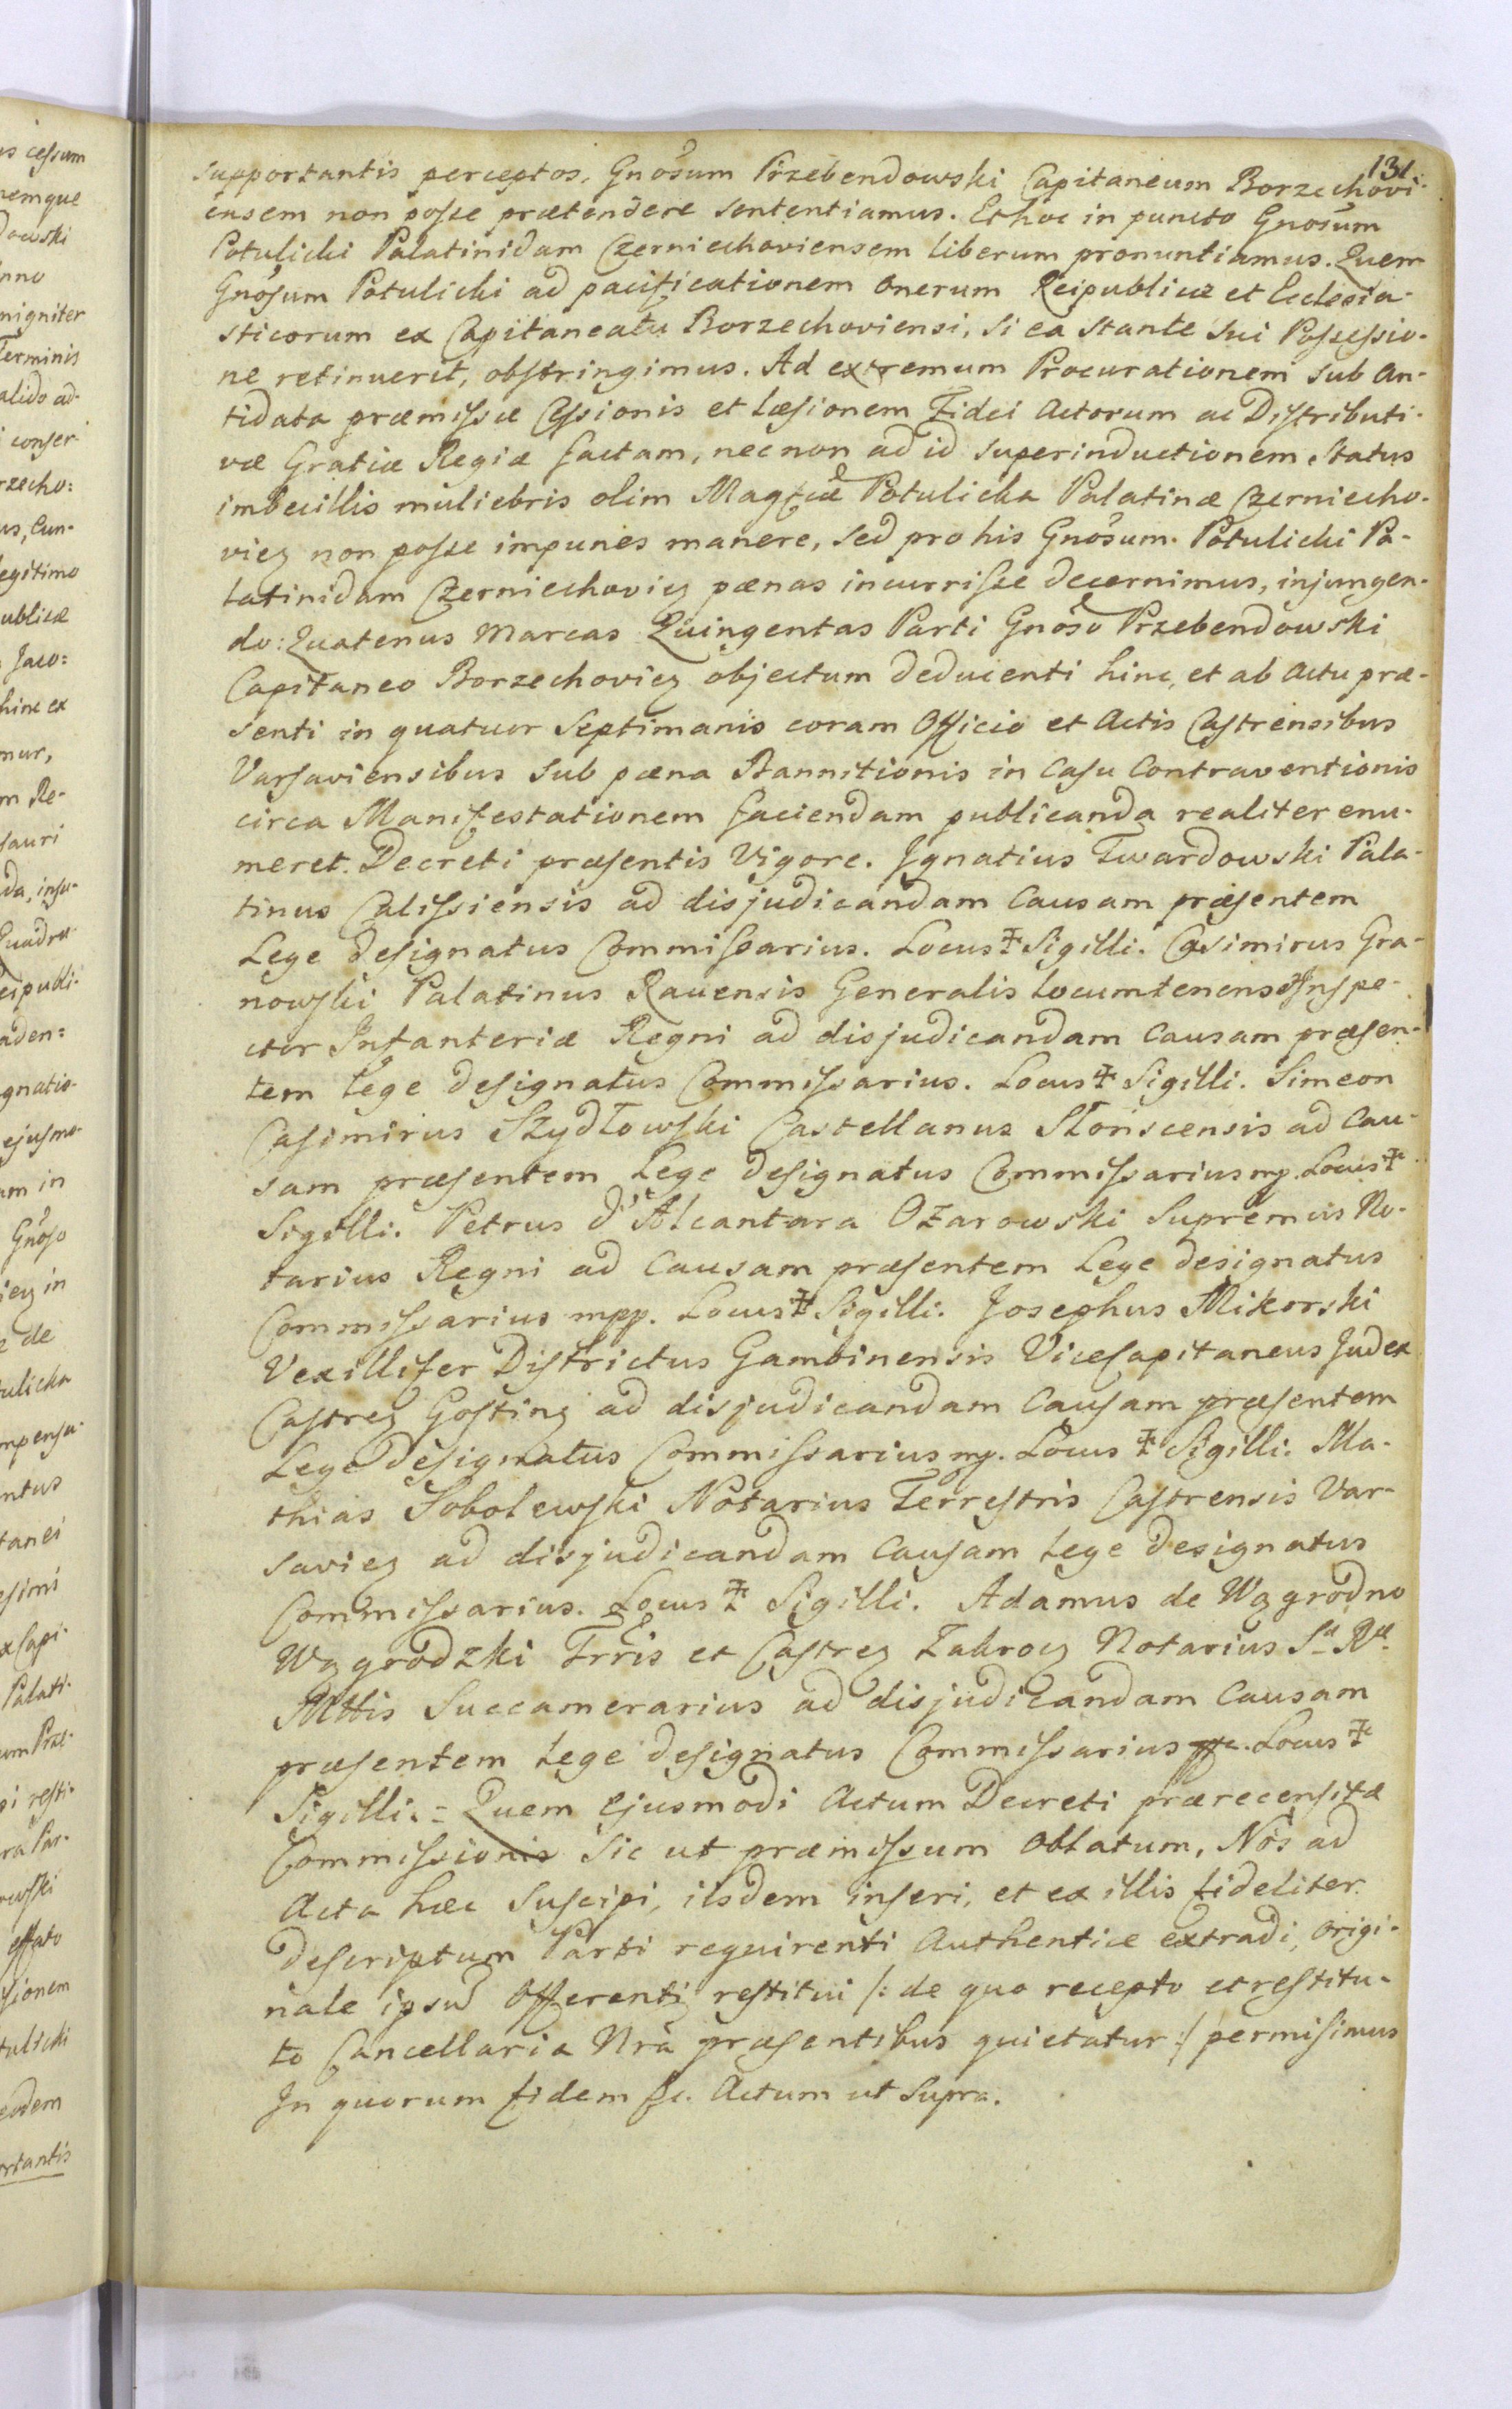 131.
supportantis perceptos, Gnosum Przebendowski Capitaneum Borzechovi-
ensem non posse prætendere sententiamus. Et hoc in puncto Gnosum
Potulicki Palatinidam Czerniechoviensem liberum pronuntiamus. Quem
Gnosum Potulicki ad pacificationem onerum Reipublicæ et Ecclesia-
sticorum ex Capitaneatu Borzechoviensi, si ea stante sui Possessio-
ne retinuerit, obstringimus. Ad extremum Procurationem sub An-
tidata præmissæ Cessionis et læsionem Fidei Actorum ac Distributi-
væ Gratiæ Regiæ factam, nec non ad id superinductionem status
imbecillis muliebris olim Magficæ Potulicka Palatinæ Czerniecho-
vien non posse impunes manere, sed pro his Gnosum Potulicki Pa-
latinidam Czerniechovien pænas incurrisse decernimus, injungen-
do: Quatenus Marcas Quingentas Parti Gnoso Przebendowski
Capitaneo Borzechovien objectum deducenti hinc, et ab actu præ-
senti in quatuor Septimanis coram Officio et Actis Castrensibus
Varsaviensibus sub pæna Bannitionis in Casu Contraventionis
circa Manifestationem faciendam publicanda realiter enu-
meret. Decreti præsentis Vigore. Ignatius Twardowski Pala-
tinus Calissiensis ad disjudicandam Causam præsentem
Lege designatus Commissarius. Locus ‡ Sigilli. Casimirus Gra-
nowski Palatinus Ravensis Generalis Locumtenens & Inspe-
ctor Infanteriæ Regni ad disjudicandam Causam præsen-
tem Lege designatus Commissarius. Locus ‡ Sigilli. Simeon
Casimirus Szydłowski Castellanus Słonscensis ad Cau-
sam præsentem Lege designatus Commissarius mp. Locus ‡
Sigilli. Petrus d'Alcantara Ożarowski Supremus No-
tarius Regni ad Causam præsentem Lege designatus
Commissarius mpp. Locus ‡ Sigilli. Josephus Mikorski
Vexillifer Districtus Gambinensis ViceCapitaneus Judex
Castren Gostinen ad disjudicandam Causam præsentem
Lege designatus Commissarius mp. Locus ‡ Sigilli. Ma-
thias Sobolewski Notarius Terrestris Castrensis Var-
savien ad disjudicandam Causam Lege designatus
Commissarius. Locus ‡ Sigilli. Adamus de Wągrodno
Wągrodzki Trris et Castren Zakrocz Notarius Sæ Ræ
Mttis Succamerarius ad disjudicandam Causam
præsentem Lege designatus Commissarius Locus ‡
Sigilli. = Quem ejusmodi Actum Decreti prærecensitæ
Commissionis sic ut præmissum oblatum, Nos ad
Acta hæc suscipi, iisdem inseri, et ex illis fideliter
descriptum Parti requirenti Authentice extradi, origi-
nale ipsum Offerenti restitui /: de quo recepto et restitu-
to Cancellaria Nra præsentibus quietatur :/ permisimus
In quorum fidem &c. Actum ut supra.